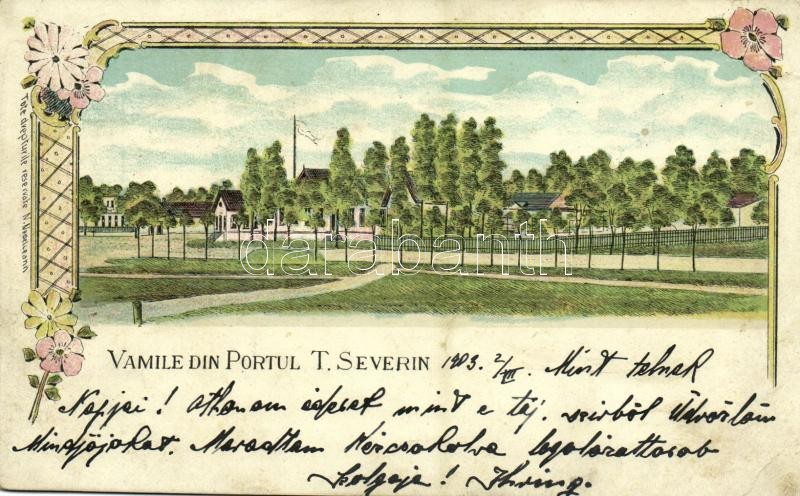 Tote drepturile reservate N.
VAMILE DIN PORTUL T. SEVERIN 1903. 2/VII. Mint telnek
Napjai! athonom édesek mint e táj. szivből Üdvözlöm
Mindnyájokat. Maradtam Kézcsokolva legalázattosab
szolgája! Ihring.
darabanth